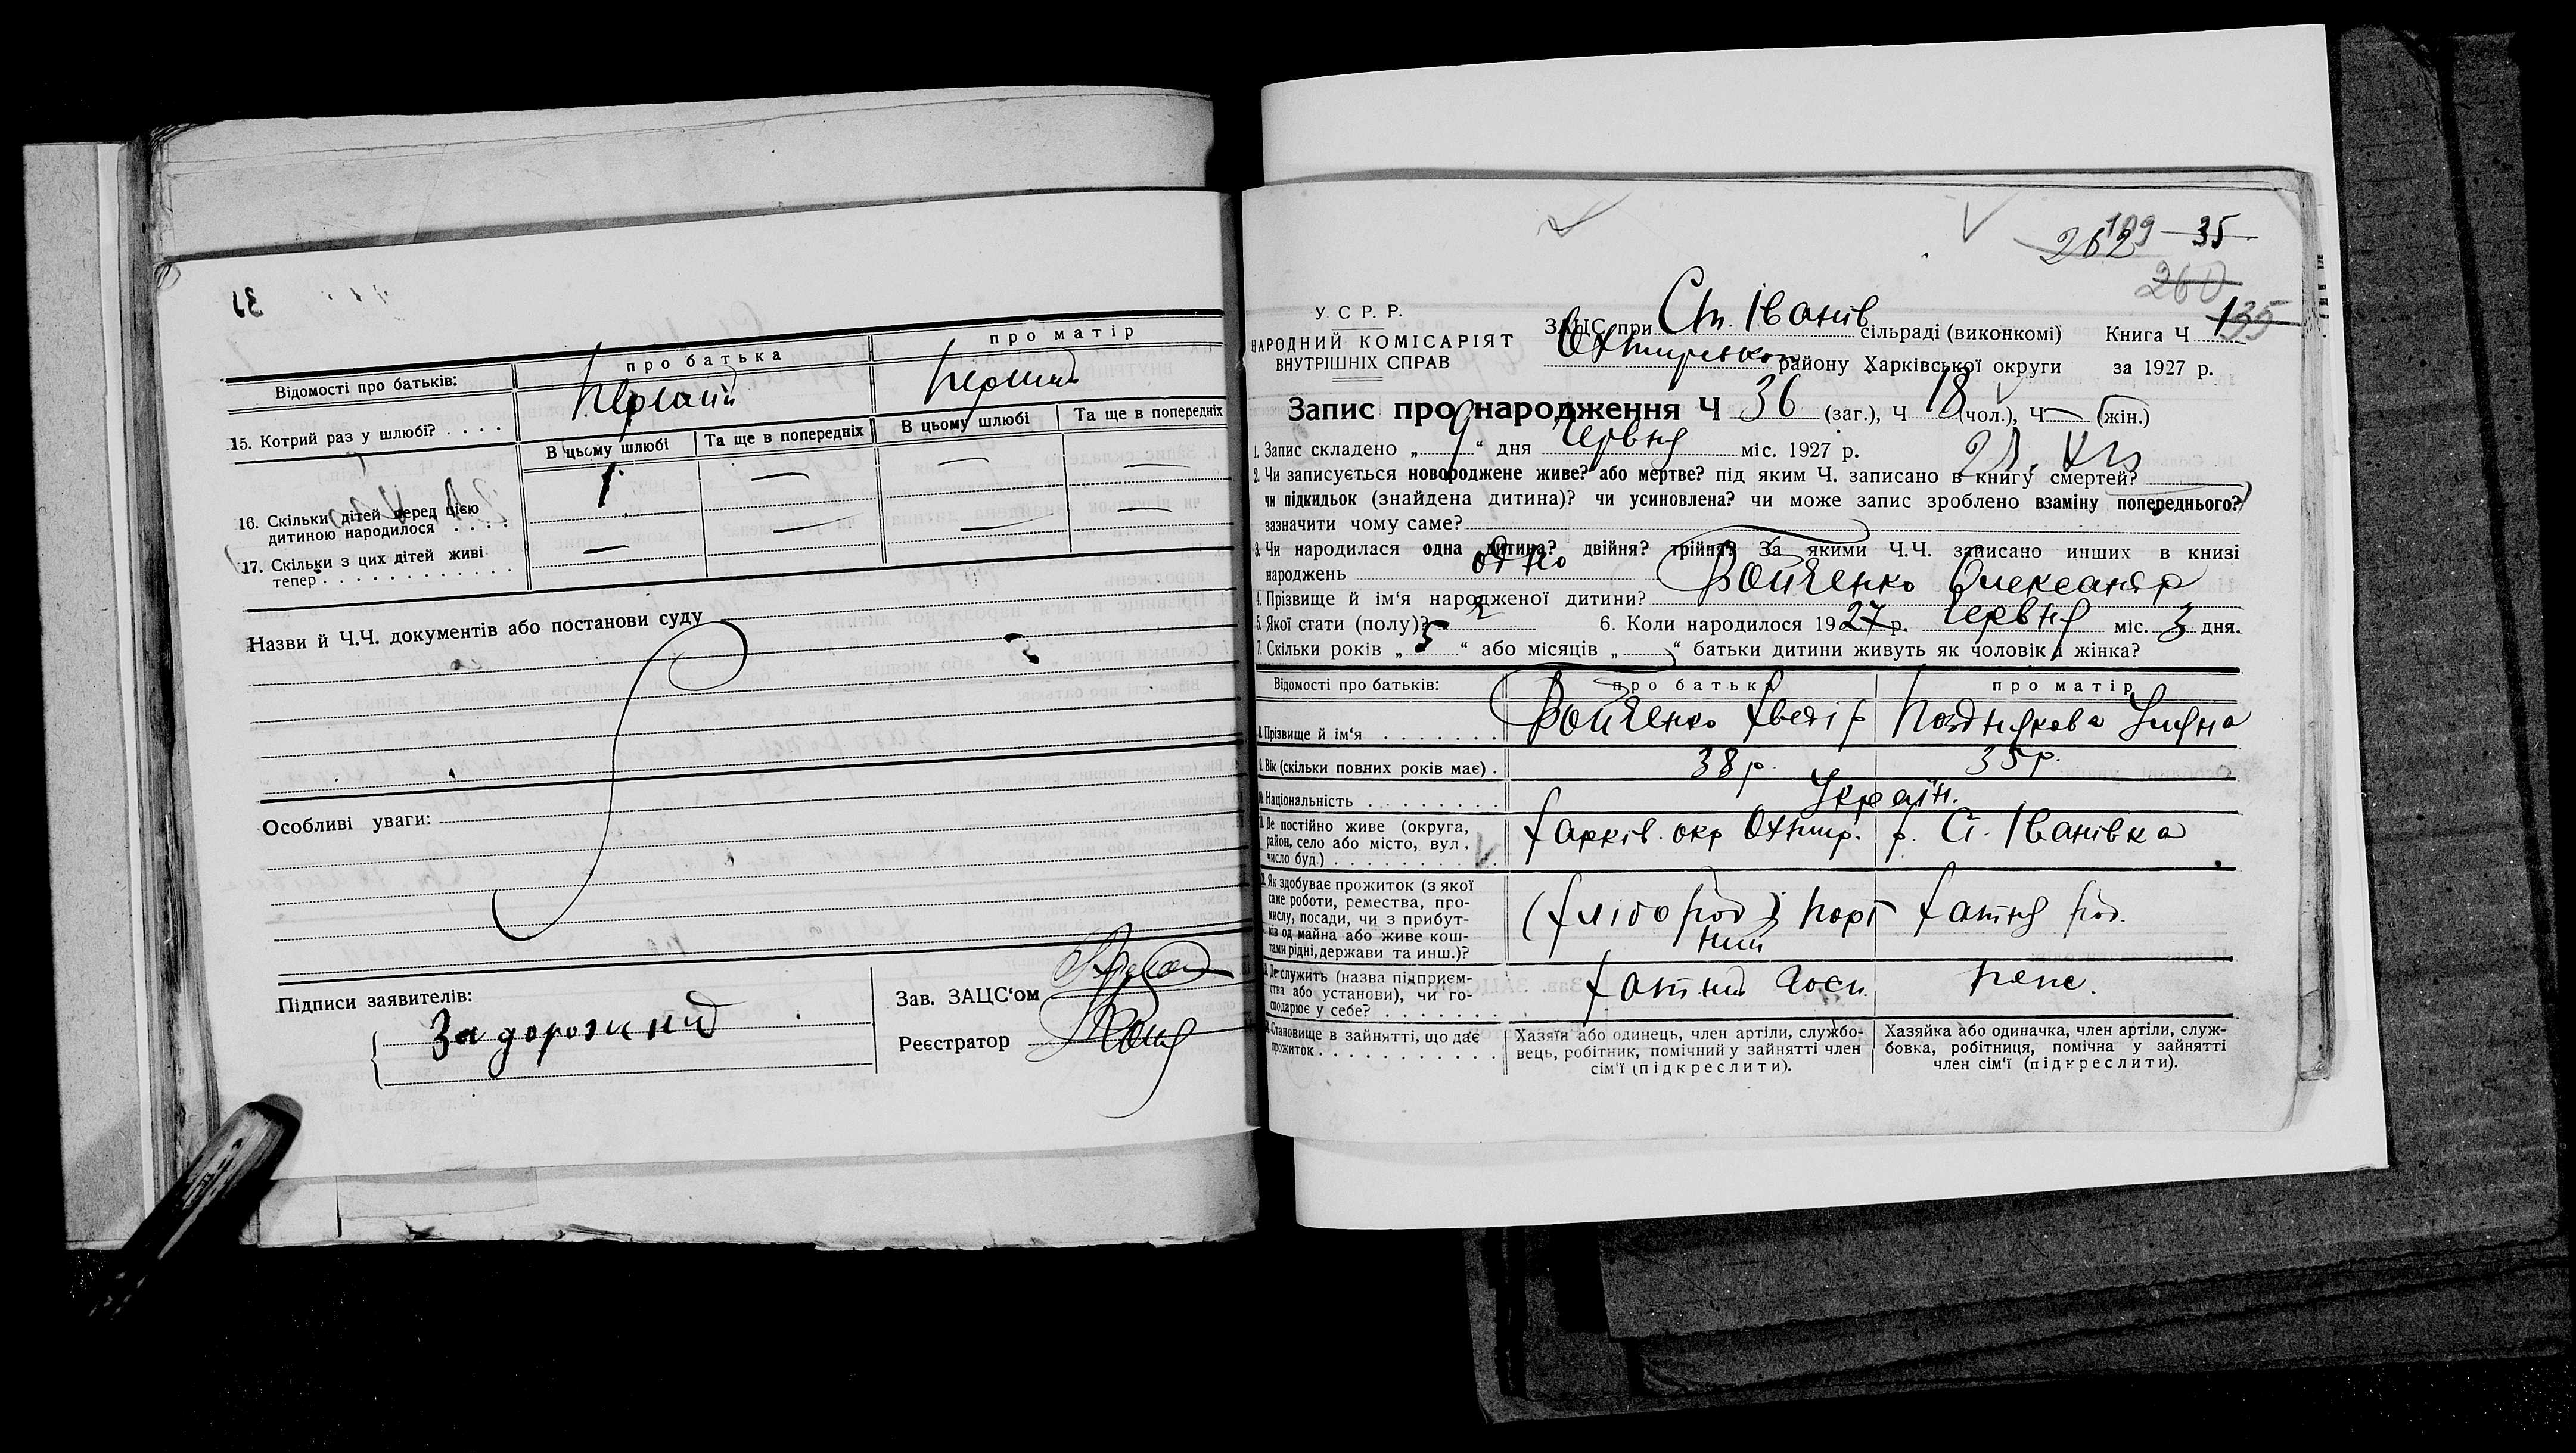 31
Відомості про батьків:
про батька
про матір
15. Котрий раз у шлюбі? . . . .
Перший
Перший
В цьому шлюбі
Та ще в попередніх
В цьому шлюбі
Та ще в попередніх
16. Скільки дітей перед цією
дитиною народилося . . . .
1
—
—
—
17. Скільки з цих дітей живі
тепер . . . . . . . . . . . .
—
—
—
Назви й Ч.Ч. документів або постанови суду
Особливі уваги:
Підписи заявителів:
Задорожний
Зав. ЗАЦС‘ом
Реєстратор
109 35
262
260
135
У. С. Р. Р.
НАРОДНИЙ КОМІСАРІЯТ
ВНУТРІШНІХ СПРАВ
ЗАЦС при Ст. Іванів сільраді (виконкомі) Книга Ч
Охтирського району Харківської округи за 1927 р.
Запис про народження Ч 36 (заг.), Ч 18 (чол.), Ч — (жін.)
1. Запис складено „ 9 “ дня Червня міс. 1927 р.
2. Чи записується новороджене живе? або мертве? під яким Ч. записано в книгу смертей?
чи підкидьок (знайдена дитина)? чи усиновлена? чи може запис зроблено взаміну попереднього?
зазначити чому саме?
3. Чи народилася одна дитина? двійня? трійня? За якими Ч.Ч. записано инших в книзі
народжень одно
4. Прізвище й ім‘я народженої дитини? Войченко Олександр
5. Якої стати (полу)? 6. Коли народилося 1927 р. Червня міс. 3 дня.
7. Скільки років „ 5 “ або місяців „ “ батьки дитини живуть як чоловік і жінка?
Відомості про батьків:
про батька
про матір
8. Прізвище й ім‘я . . . . . . .
Войченко Хведір
Позднякова Уляна
9. Вік (скільки повних років має) .
38 р.
35 р.
10. Національність . . . . . . . .
Україн.
11. Де постійно живе (округа,
район, село або місто, вул.,
число буд.) . . . . . . . . . .
Харків. окр Охтир. р. Ст. Іванівка
12. Як здобуває прожиток (з якої
саме роботи, ремества, про-
мислу, посади, чи з прибут-
ків од майна або живе кош-
тами рідні, держави та инш.)?
(хлібороб)
Хатня
13. Де служить (назва підприєм-
ства або установи), чи го-
сподарює у себе? . . . . . . .
Хатний Госп.
14. Становище в зайнятті, що дає
прожиток . . . . . . . . . . .
Хазяїн або одинець, член артіли, службо-
вець, робітник, помічний у зайнятті член
сім‘ї (підкреслити).
Хазяйка або одиначка, член артіли, служ-
бовка, робітниця, помічна у зайнятті
член сім‘ї (підкреслити).